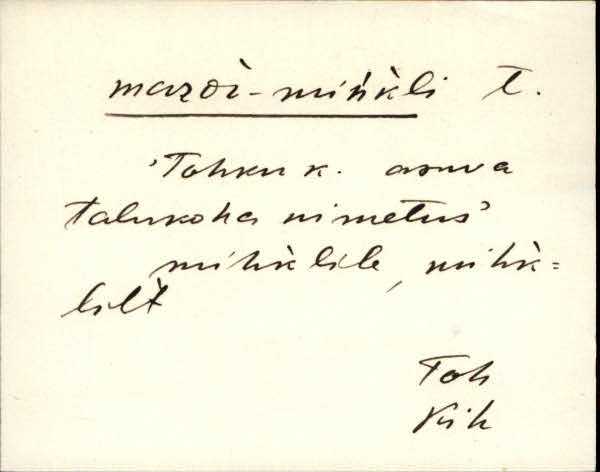 mazoì-mihk̀li t.
'Tohku k. asuva
talukoha nimetus'
mihk̀lile, mihk̀=
lilt
Toh
Kih